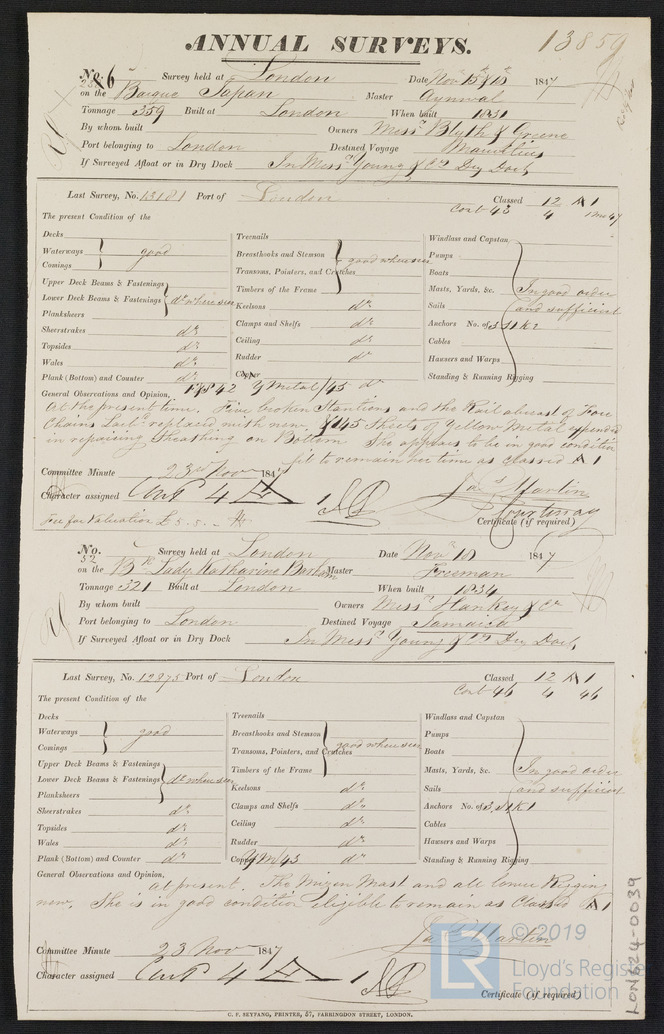 ANNUAL SURVEYS. 13859
No. 6 Survey held at London Date Nov 15 & 18 1847
on the Barque Japan Master Aynwal
Tonnage 359 Built at London When built 1831
By whom built Owners Messrs Blyth & Greene
Port belonging to London Destined Voyage Mauritius
If Surveyed Afloat or in Dry Dock In Messrs Young & Co Dry Dock
Last Survey, No. 13181 Port of London Classed 12 A 1
Cont 43 4
The present Condition of the
Decks
Waterways good
Comings
Upper Deck Beams & Fastenings
Lower Deck Beams & Fastenings do where seen
Planksheers
Sheerstrakes do
Topsides do
Wales do
Plank (Bottom) and Counter do
Treenails
Breasthooks and Stemson good where seen
Transoms, Pointers, and Crutches
Timbers of the Frame
Keelsons do
Clamps and Shelfs do
Ceiling do
Rudder do
Copper
Windlass and Capstan
Pumps
Boats
Masts, Yards, &c. In good order
Sails and sufficient
Anchors No. of 3, S1 K2
Cables
Hausers and Warps
Standing & Running Rigging
42 Y Metal /45 do
General Observations and Opinion,
At the present time. Five broken Stantions and the Rail abreast of Fore
Chains Larb replaced with new. & 145 Sheets of Yellow Metal expended
in repairing Sheathing on Bottom. She appears to be in good condition
fit to remain her time as classed A 1
Committee Minute 23rd Nov 1847
Jas Martin
Character assigned Cont 4 A 1
Courtenay
Fee for Valuation £ 5 . 5 . -
Certificate (if required)
No. 52 Survey held at London Date Nov 18 1847
on the Bk Lady Katharine Barham Master Freeman
Tonnage 321 Built at London When built 1834
By whom built Owners Messrs Hankey & Co
Port belonging to London Destined Voyage Jamaica
If Surveyed Afloat or in Dry Dock In Messrs Young & Co Dry Dock
Last Survey, No. 12875 Port of London Classed 12 A 1
Cont 46 4 46
The present Condition of the
Decks
Waterways good
Comings
Upper Deck Beams & Fastenings
Lower Deck Beams & Fastenings do where seen
Planksheers
Sheerstrakes do
Topsides do
Wales do
Plank (Bottom) and Counter do
Treenails
Breasthooks and Stemson good where seen
Transoms, Pointers, and Crutches
Timbers of the Frame
Keelsons do
Clamps and Shelfs do
Ceiling do
Rudder do
Copper Y M/43 do
Windlass and Capstan
Pumps
Boats
Masts, Yards, &c. In good order
Sails and sufficient
Anchors No. of 3, S1 K1
Cables
Hausers and Warps
Standing & Running Rigging
General Observations and Opinion,
At present. The Mizen Mast and all lower Rigging
new. She is in good condition eligible to remain as Classed A 1
Jas Martin
Committee Minute 23 Nov 1847
Character assigned Cont 4 A 1
Certificate (if required)
C. F. SEYFANG, PRINTER, 57, FARRINGDON STREET, LONDON.
LON624-0039
LR
©2019
Lloyd's Register
Foundation